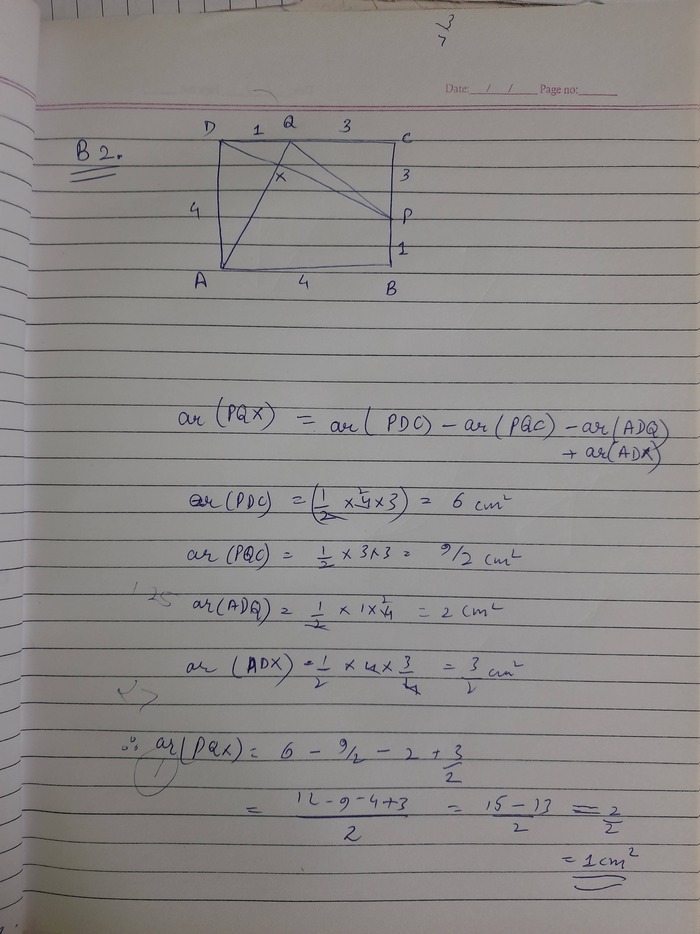 3
7
Date: / / Page no:
B 2.
D 1 Q 3 C
X
3
4
P
1
A 4 B
ar (PQX) = ar( PDC) - ar( PQC) - ar(ADQ)
+ ar(ADX)
ar (PDC) = (1/2 × 4 2 × 3) = 6 cm²
ar (PQC) = 1/2 × 3×3 = 9/2 cm²
ar(ADQ) = 1/2 × 1× 4 2 = 2 cm²
ar (ADX) = 1/2 × 4 × 3/4 = 3/2 cm²
∴ ar(PQX) = 6 - 9/2 - 2 + 3/2
= 12-9-4+3/2 = 15-13/2 = 2/2
= 1 cm²